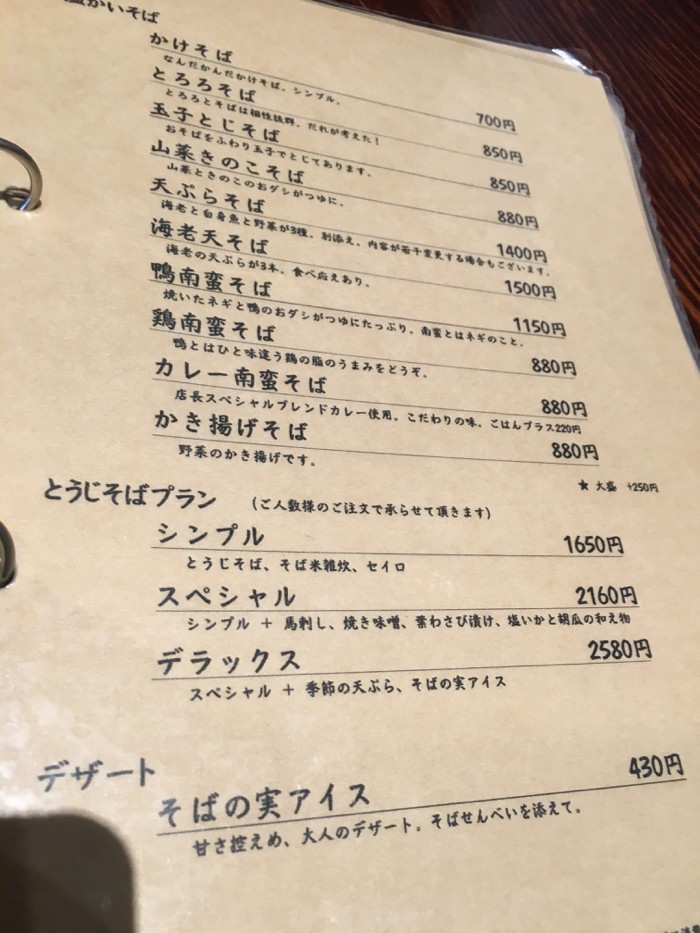 温かいそば
かけそば 700円
なんだかんだかけそば。シンプル。
とろろそば 850円
とろろとそばは相性抜群、だれが考えた!
玉子とじそば 850円
おそばをふわり玉子でとじてあります。
山菜きのこそば 880円
山菜ときのこのおダシがつゆに。
天ぷらそば 1400円
海老と白身魚と野菜が3種、別添え、内容が若干変更する場合もございます。
海老天そば 1500円
海老の天ぷらが3本、食べ応えあり。
鴨南蛮そば 1150円
焼いたネギと鴨のおダシがつゆにたっぷり、南蛮とはネギのこと。
鶏南蛮そば 880円
鴨とはひと味違う鶏の脂のうまみをどうぞ。
カレー南蛮そば 880円
店長スペシャルブレンドカレー使用。こだわりの味。ごはんプラス220円
かき揚げそば 880円
野菜のかき揚げです。
★ 大盛 +250円
とうじそばプラン (ご人数様のご注文で承らせて頂きます)
シンプル 1650円
とうじそば、そば米雑炊、セイロ
スペシャル 2160円
シンプル + 馬刺し、焼き味噌、葉わさび漬け、塩いかと胡瓜の和え物
デラックス 2580円
スペシャル + 季節の天ぷら、そばの実アイス
デザート
そばの実アイス 430円
甘さ控えめ、大人のデザート。そばせんべいを添えて。